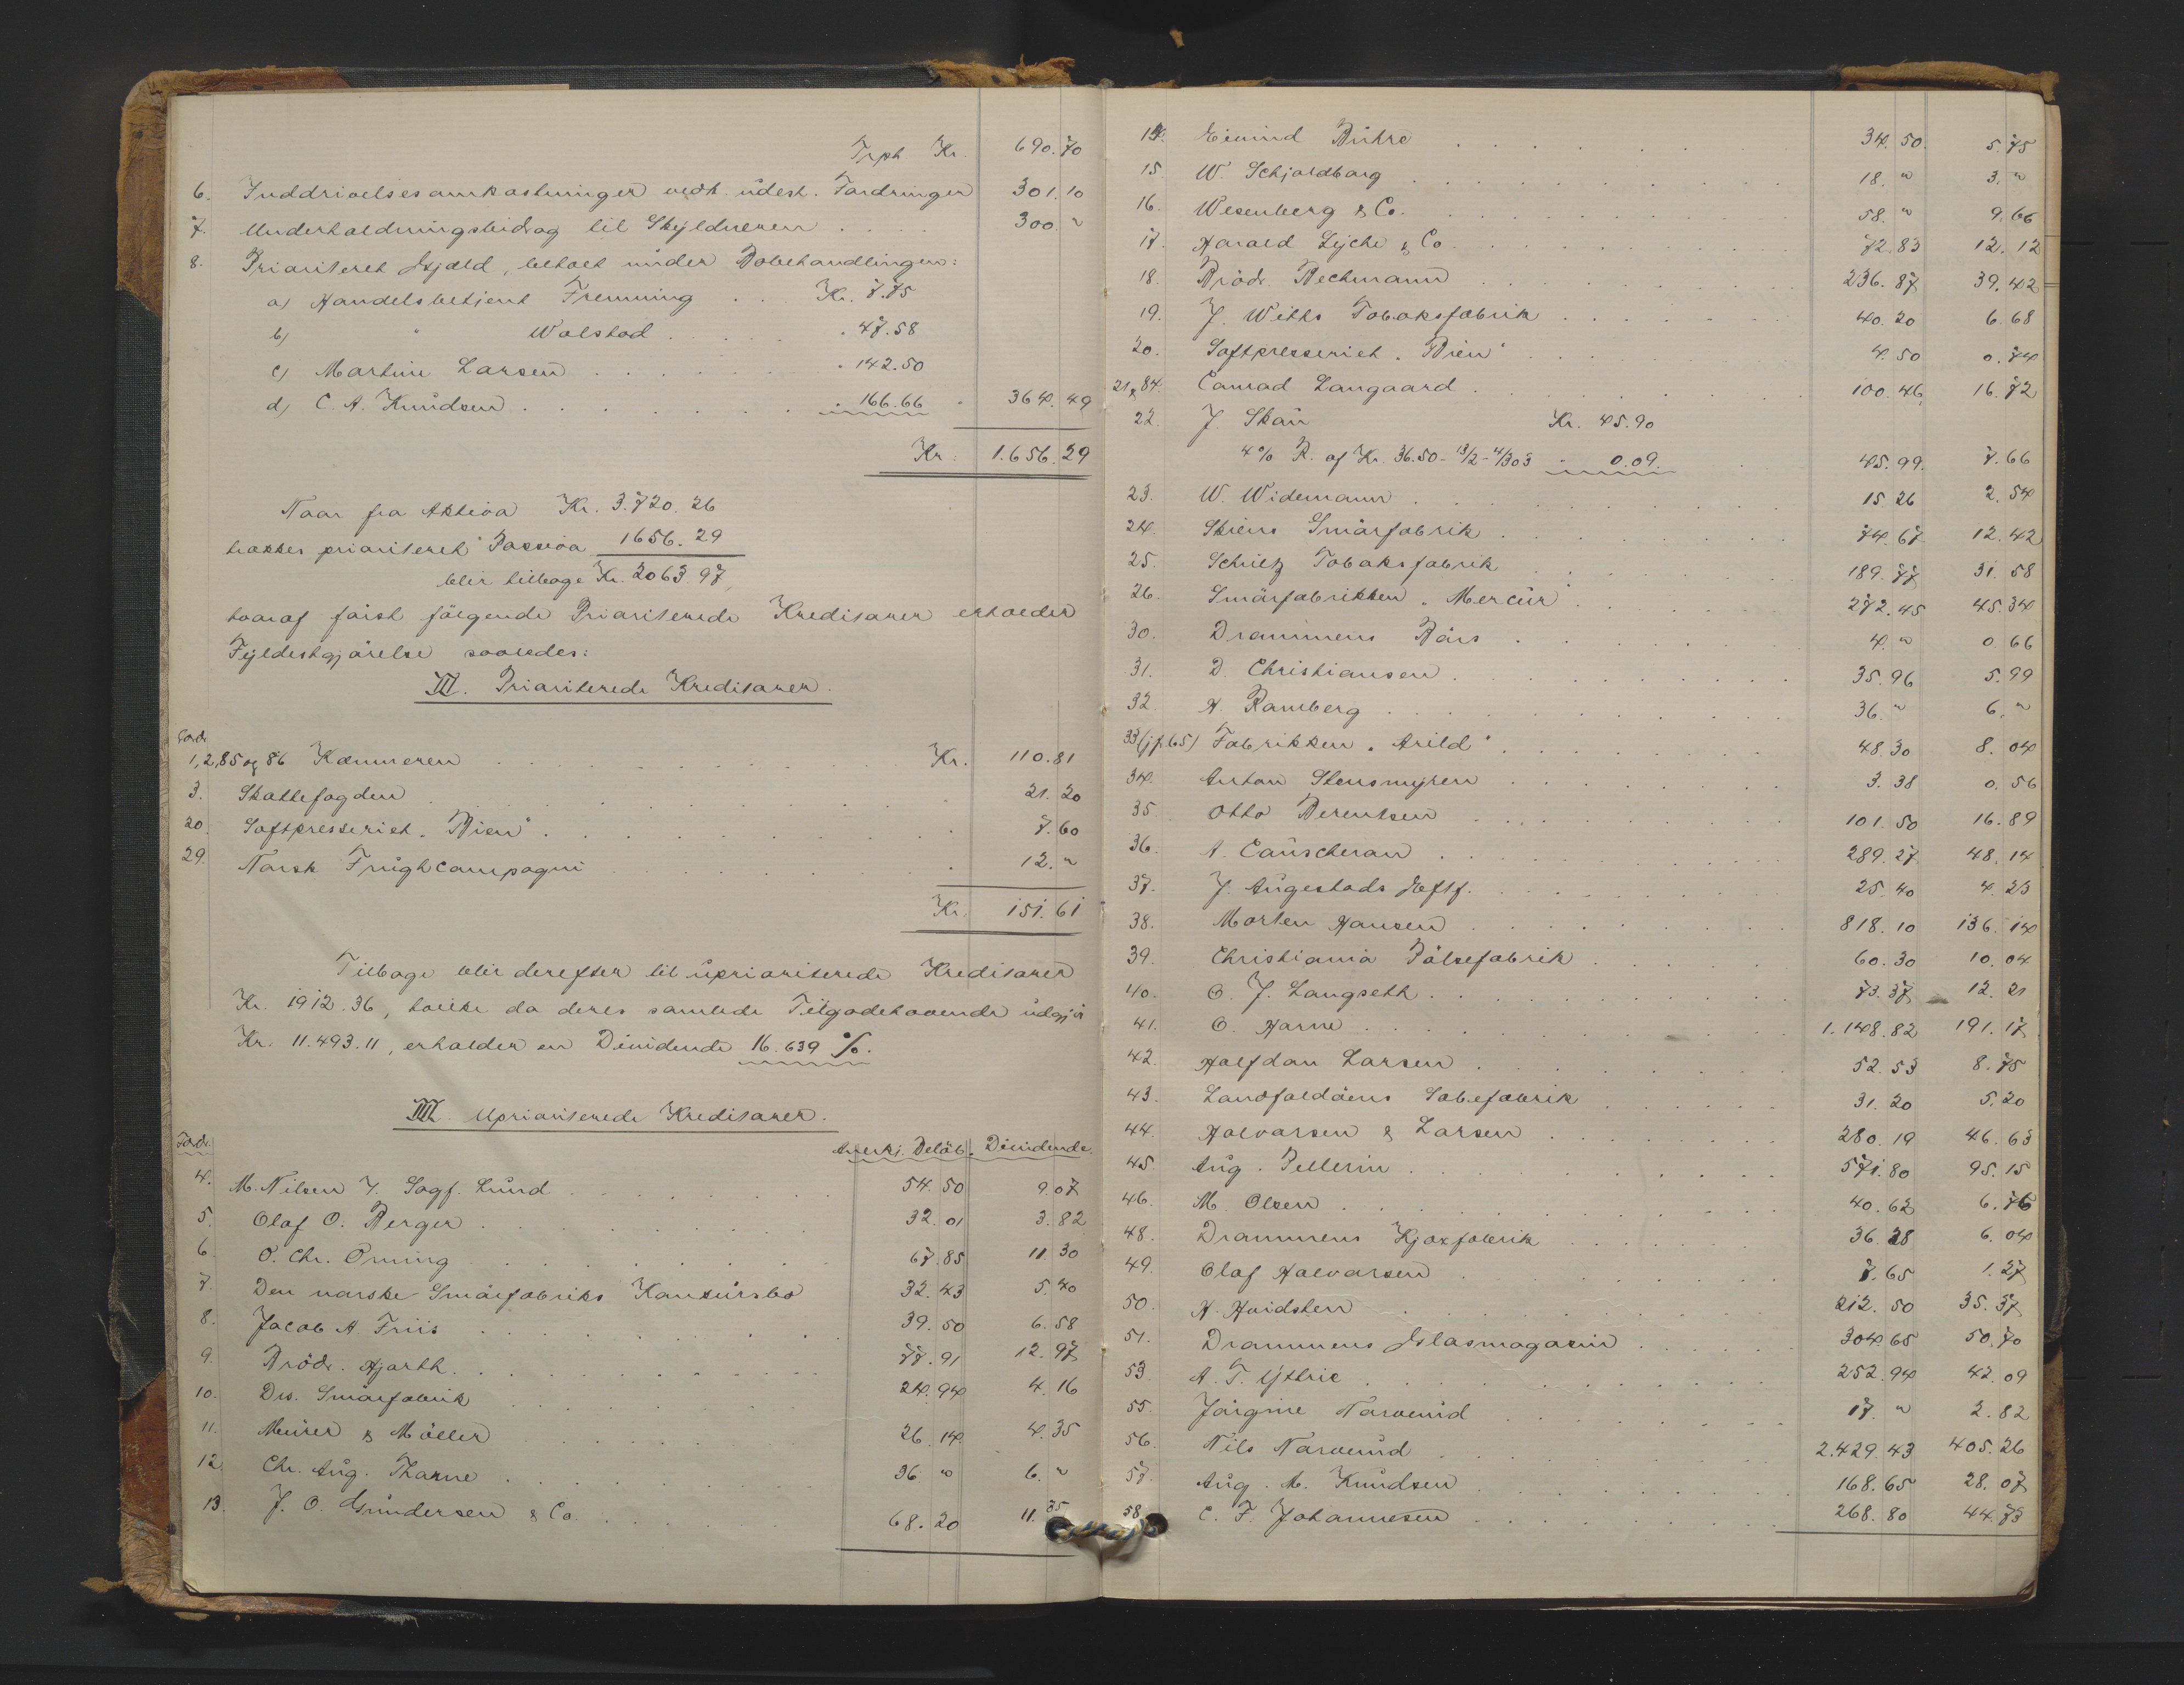 Trpt Kr. 690.70
6. Inddrivelsesomkostninger vedk. udest. Fordringer 301.10
7. Underholdningsbidrag til Skyldneren . . . . 300. "
8. Prioriteret Gjæld, betalt under Bobehandlingen:
a) Handelsbetjent Fremming . . . Kr. 7.75
b) " Wolstad . . . . . 47.58
c) Martine Larsen . . . . . . . 142.50
d) C. A. Knudsen . . . . . . . . 166.66 . 364.49
Kr. 1.656.29
Naar fra Aktiva Kr. 3.720.26
trækkes prioriteret Passiva 1656.29
blir tilbage Kr. 2063.97,
hvoraf først følgende Prioriterede Kreditorer erholder
Fyldestgjørelse saaledes:
II. Prioriterede Kreditorer.
Fordr.
1,2,85 og 86 Kæmneren . . . . . . . . Kr. 110.81
3. Skattefogden . . . . . . . . . 21.20
20. Saftpresseriet "Bien" . . . . . . . . 7.60
29. Norsk Frugtcompagni . . . . . . . . 12. "
Kr. 151.61
Tilbage blir derefter til uprioriterede Kreditorer
Kr. 1912.36, hvilke da deres samlede Tilgodehavende udgjør
Kr. 11.493.11, erholder en Dividende 16.639 %.
III. Uprioriterede Kreditorer.
Fordr. Anerkj. Beløb. Dividende.
4. M. Nilsen v. Sagf. Lund . . . . . . 54.50 9.07
5. Olaf O. Berger . . . . . . . . 32.01 3.82
6. O. Chr. Orning . . . . . . . . 67.85 11.30
7. Den norske Smørfabriks Konkursbo 32.43 5.40
8. Jacob A. Friis . . . . . . . . 39.50 6.58
9. Brødr. Hjorth . . . . . . . . 77.91 12.97
10. Drs. Smørfabrik . . . . . . 24.94 4.16
11. Meürer & Møller . . . . . . 26.14 4.35
12. Chr. Aug. Thorne . . . . . . . 36. " 6. "
13. J. O. Gundersen & Co. . . . . . 68.20 11.35
14. Eivind Buhre . . . . . . . 34.50 5.75
15. W. Schjoldborg . . . . . . . . . 18. " 3. "
16. Wesenberg & Co. . . . . . . . . 58. " 9.66
17. Harald Lyche & Co. . . . . . . . . 72.83 12.12
18. Brødr. Bechmann . . . . . . . . 236.87 39.42
19. J. Witts Tobaksfabrik . . . . . . 40.20 6.68
20. Saftpresseriet "Bien" . . . . . . . 4.50 0.74
21 & 84. Conrad Langaard . . . . . . . . . 100.46 16.72
22. J. Skau Kr. 45.90
4% R. af Kr. 36.50 - 13/2 - 4/3 03 - 0.09. . 45.99. 7.66
23. W. Widemann . . . . . . . . . 15.26 2.54
24. Skiens Smørfabrik . . . . . . . . 74.67 12.42
25. Schultz Tobaksfabrik . . . . . . . 189.77 31.58
26. Smørfabrikken "Mercur" . . . . . . 272.45 45.34
30. Drammens Børs . . . . . . . . 4. " 0.66
31. D. Christiansen . . . . . . . . . 35.96 5.99
32. A. Ramberg . . . . . . . . . . 36. " 6. "
33 (jf. 65) Fabrikken "Arild" . . . . . . . . 48.30 8.04
34. Anton Stensmyren . . . . . . . 3.38 0.56
35. Otto Berentsen . . . . . . . . 101.50 16.89
36. A. Caucheran . . . . . . . . . 289.27 48.14
37. J. Augestads Eftf. . . . . . . . 25.40 4.23
38. Morten Hansen . . . . . . . . 818.10 136.14
39. Christiania Pølsefabrik . . . . . . 60.30 10.04
40. O. J. Langseth . . . . . . . . . 73.37 12.21
41. O. Harne . . . . . . . . . . 1.148.82 191.17
42. Halfdan Larsen . . . . . . . . 52.53 8.75
43. Landfaldøens Sæbefabrik . . . . . 31.20 5.20
44. Halvorsen & Larsen . . . . . . . 280.19 46.63
45. Aug. Pellerin . . . . . . . . . 571.80 95.15
46. M. Olsen . . . . . . . . . . . 40.62 6.76
48. Drammens Kjoxfabrik . . . . . . 36.28 6.04
49. Olaf Halvorsen . . . . . . . . 7.65 1.27
50. H. Hvidsten . . . . . . . . . 212.50 35.37
51. Drammens Glasmagasin . . . . . 304.65 50.70
53. A. T. Yttrie . . . . . . . . . . 252.94 42.09
55. Jørgine Narverud . . . . . . . 17. " 2.82
56. Nils Narverud . . . . . . . . . 2.429.43 405.26
57. Aug. M. Knudsen . . . . . . . . 168.65 28.07
58. C. F. Johannesen . . . . . . . . 268.80 44.73